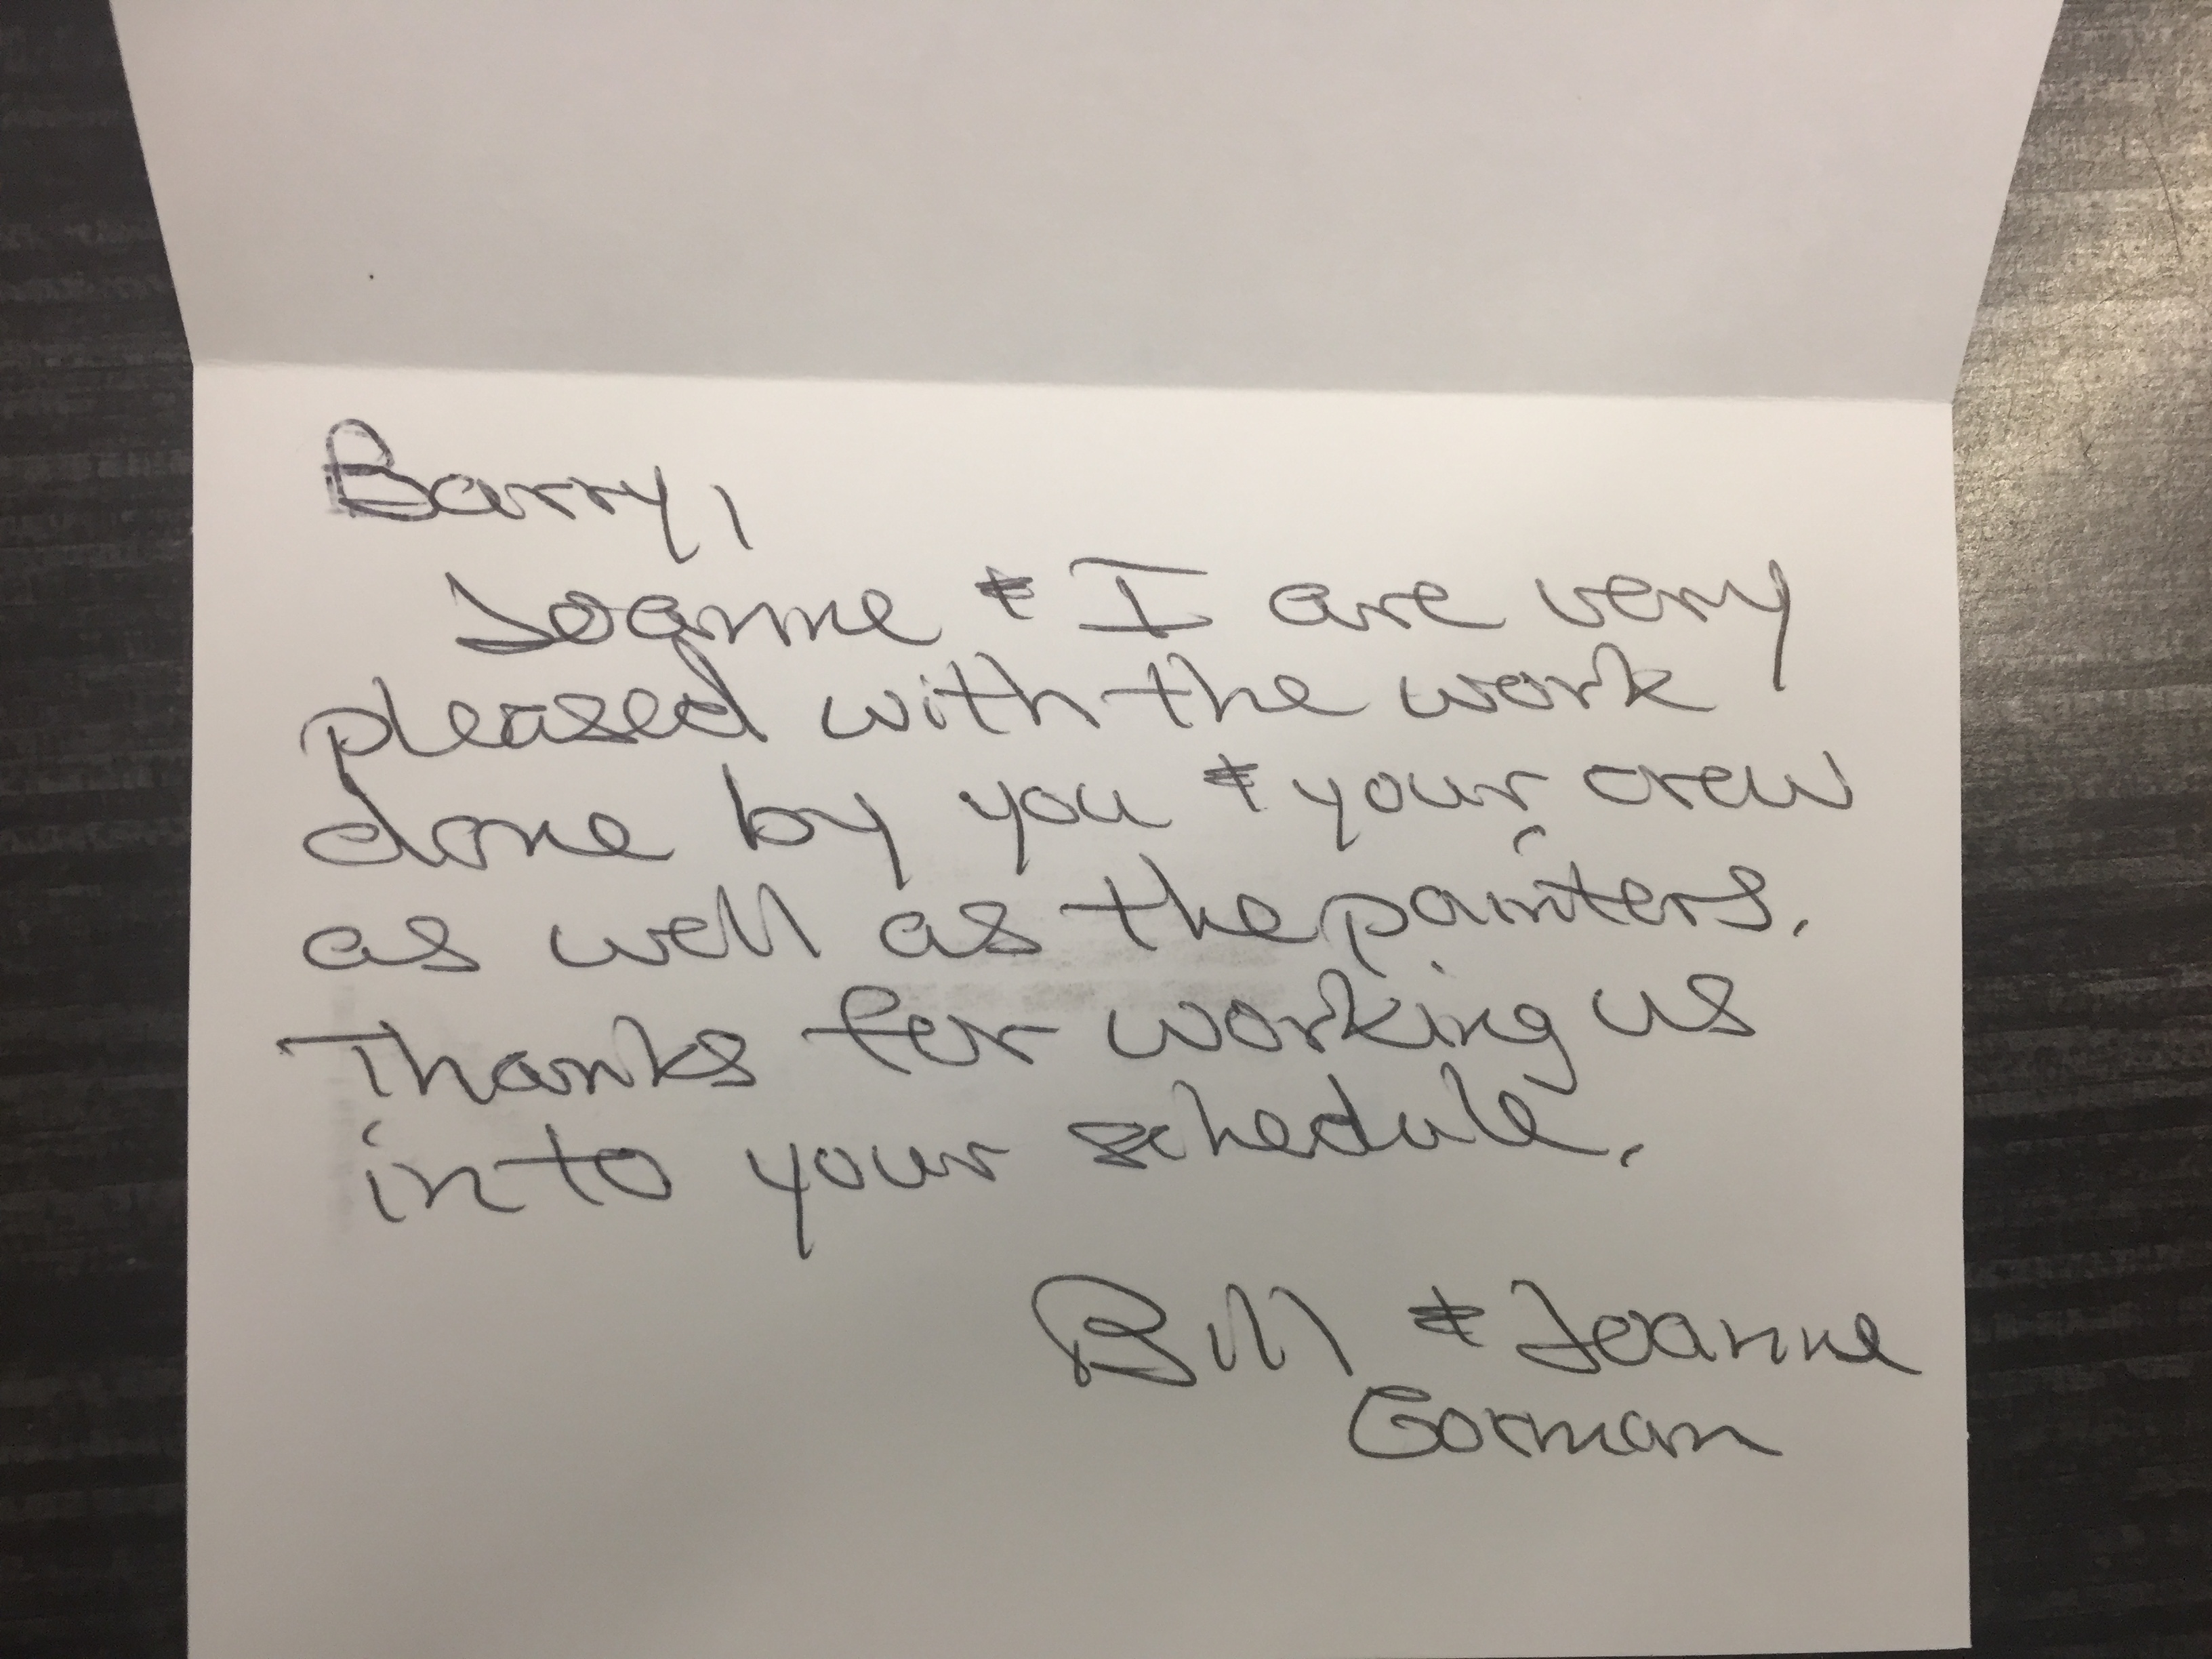 Barry,
Joanne & I are very
pleased with the work
done by you & your crew
as well as the painters.
Thanks for working us
into your schedule.
Bill & Joanne
Gorman